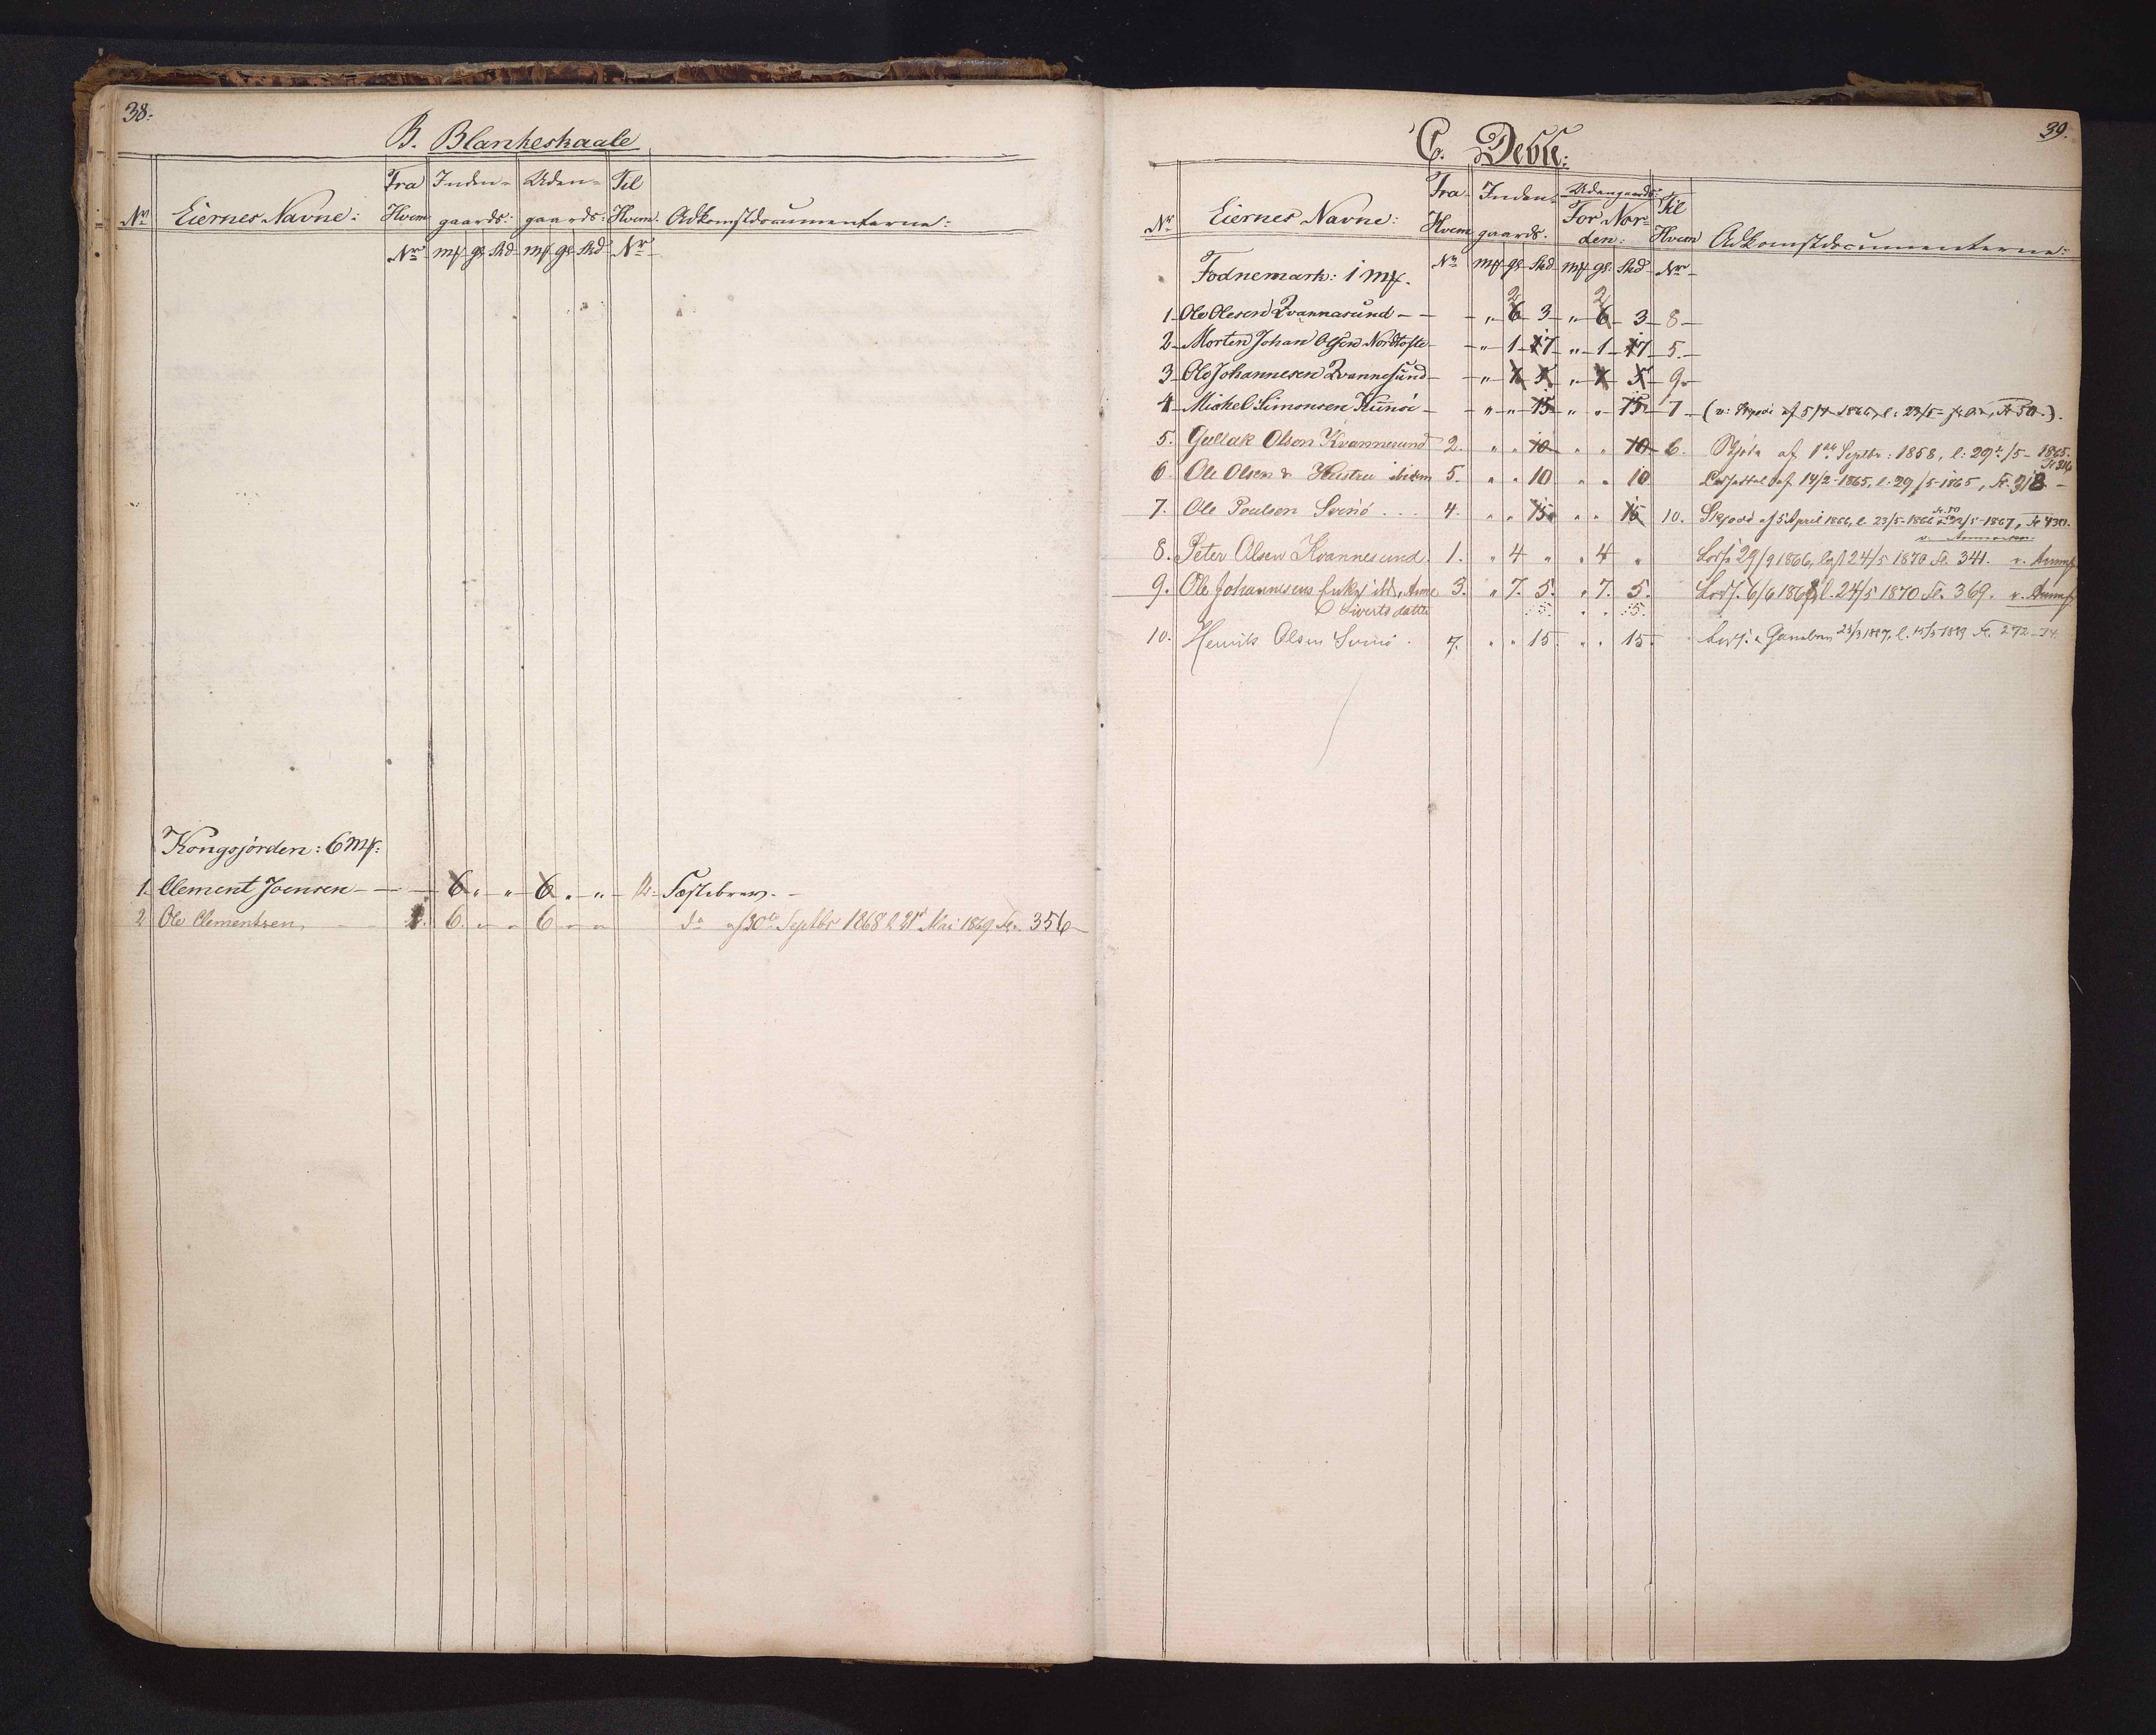 38.
B. Blankeskaale
Nr. Eiernes Navne: Fra Hvem Nr. Inden-gaards: Mk gl Skd Uden-gaards: Mk gl Skd Til Hvem Nr. Adkomstdocumenterne:
Kongsjorden: 6 Mk:
1. Clement Joensen - - 6 „ „ 6 „ „ 2. Fæstebrev. -
2 Ole Clementsen, 1. 6 „ „ 6 „ „ do af 30te Septbr 1868 l. 21de Mai 1869 Fl. 356
39.
C. Deble:
Nr. Eiernes Navne: Fra Hvem Nr. Inden-gaards. Mk gl. Skd Udengaards: For Norden: Mk gl. Skd Til Hvem Nr. Adkomstdocumenterne:
Fodnemark: 1 Mk.
2 2
1. Ole Olesen Qvannasund - - „ 6 3 „ 6 3 8
2. Morten Johan Olsen Nordtofte - „ 1 17 „ 1 17 5.
3. Ole Johannesen Qvannesund - „ 7 5 „ 7 5 9.
4. Michel Simonsen Kunøi - „ „ 15 „ „ 15 7 (v: af 5/4 1866, l: 23/5 Fl. 50.).
5. Gullak Olsen Kvannesund 2. „ „ 10 „ „ 10 6. Skjøde af 1de Septbr: 1858, l: 29/5 - 1865. Fl. 316
6. Ole Olsen & Hustru ibidem 5. „ „ 10 „ „ 10 af 14/2 - 1865, l. 29/5 1865, Fl. 318 -
7. Ole Poulsen Svinö . . . 4. „ „ 15 „ „ 15 10. Skjøde af 5 April 1866, l. 23/5 - 1866 Fl. 50 /5 - 1867, Fl 430.
8. Peter Olsen Kvannesund. 1. „ 4 „ „ 4 „ 29/9 1866, 24/5 1870 Fl. 341. v.
9. Ole Johannesens Enke ibd, Anne 3. „ 7. 5. „ 7. 5. 6/6 1868, l. 24/5 1870 Fl. 369. v.
Siverts datter :5: „ „ :5:
10. Henrik Olsen Svinö . 7. „ „ 15. „ „ 15. 23/3 1887, l. 15/5 1889 Fl. 272-74.